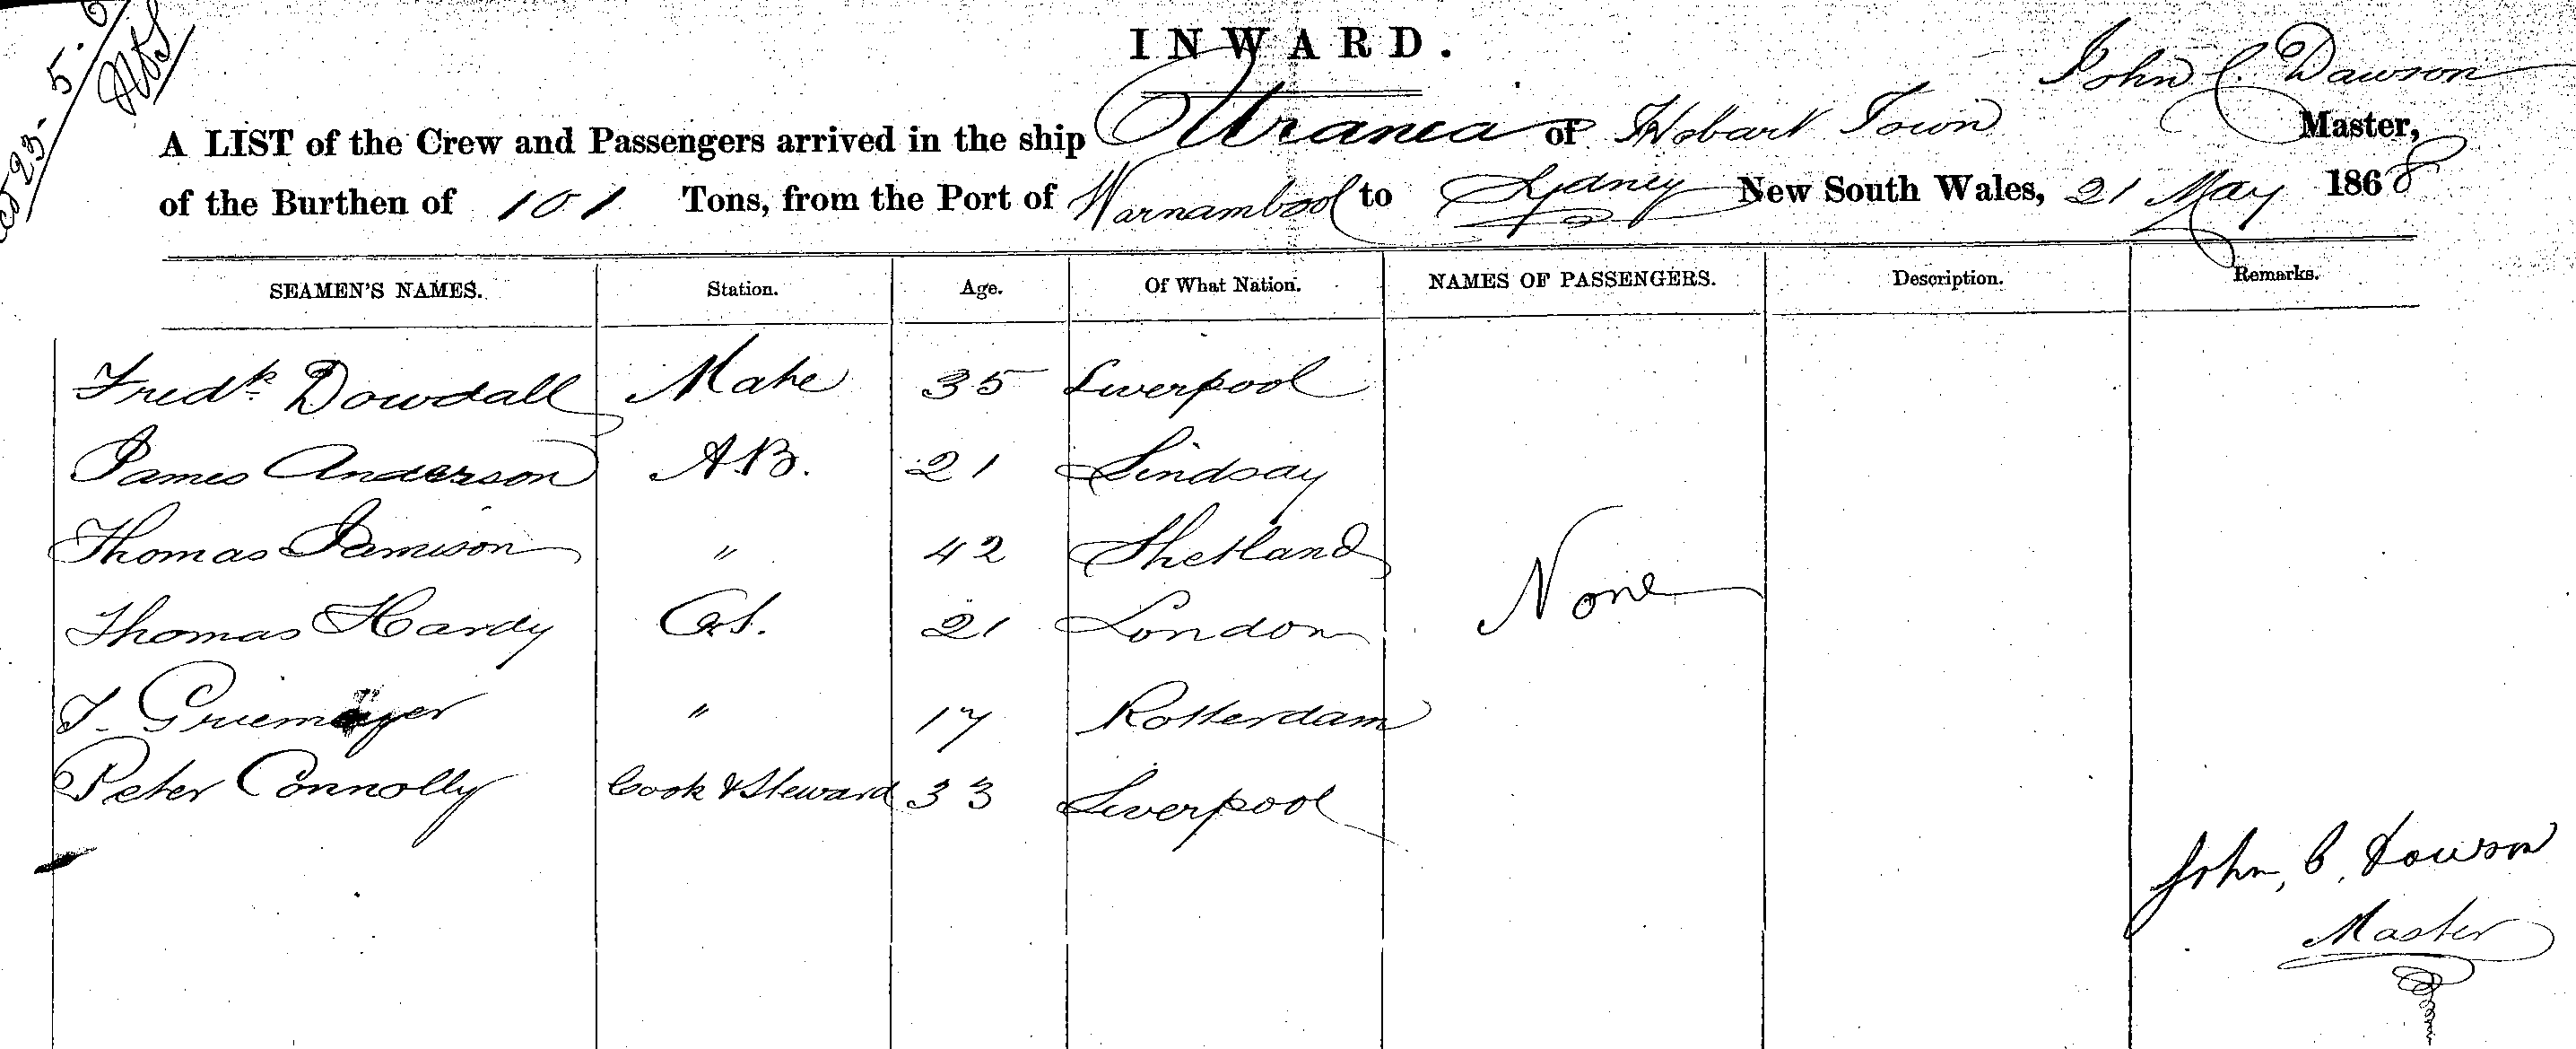 INWARD.
John C. Dawson
A LIST of the Crew and Passengers arrived in the ship Urania of Hobart Town Master,
of the Burthen of 101 Tons, from the Port of Warnambool to Sydney New South Wales, 21 May 1868
SEAMEN'S NAMES. Station. Age. Of What Nation. NAMES OF PASSENGERS. Description. Remarks.
Fredk. Dowdall Mate 35 Liverpool
James Anderson A.B. 21 Lindsay
Thomas Jamison " 42 Shetland
None
Thomas Hardy O.S. 21 London
" 17 Rotterdam
Peter Connolly Cook & Steward 33 Liverpool
John, C, Dawson
Master